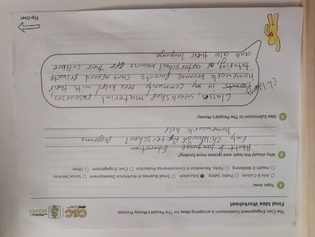 The Civic Engagement Commission is accepting ideas for The People's Money Process.
Final Idea Worksheet
CEC
1 Topic Area
Arts & Culture Public Safety Education Small Business & Workforce Development Social Services
Health & Wellbeing Parks, Recreation & Environmental Protection Civic Engagement Other
2 Why would this topic area improve
Adult & language Education
Early childhood & After school programs
homework help
3 Idea Submission The People's Money
Classes, workshop, material, resources,
in my community need helps with their
homework because parents can't afford private
tutoring or afterschool because their culture
and also their language
Flip Over